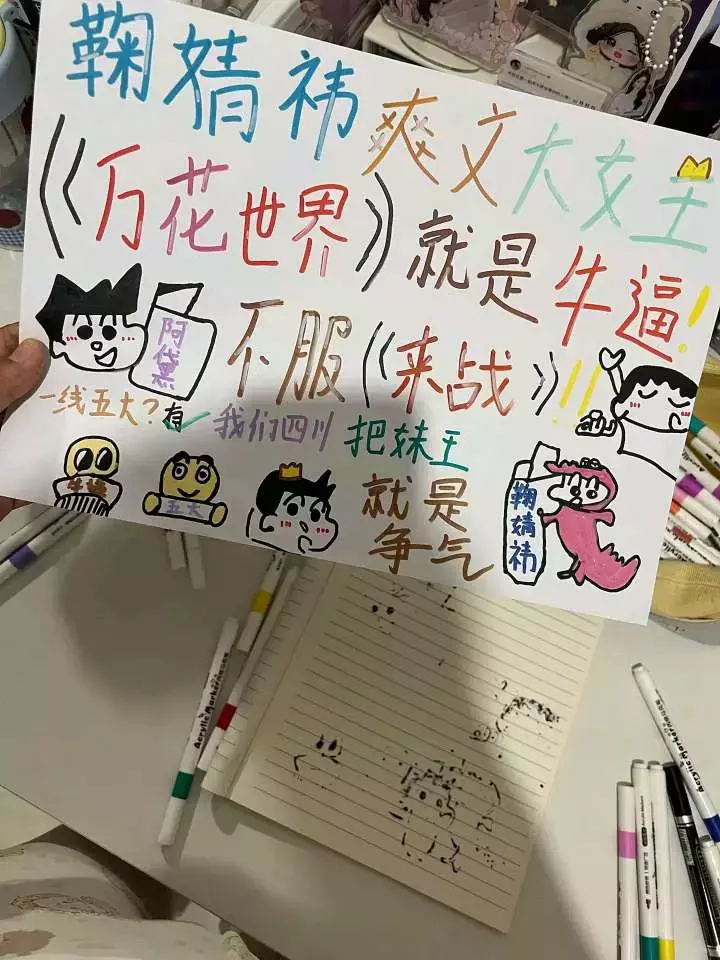 鞠婧祎爽文大女王
《万花世界》就是牛逼!
阿黛
不服《来战》!!!
一线五大?有✓我们四川把妹王
就是争气
五大
鞠婧祎
Acrylic Marker